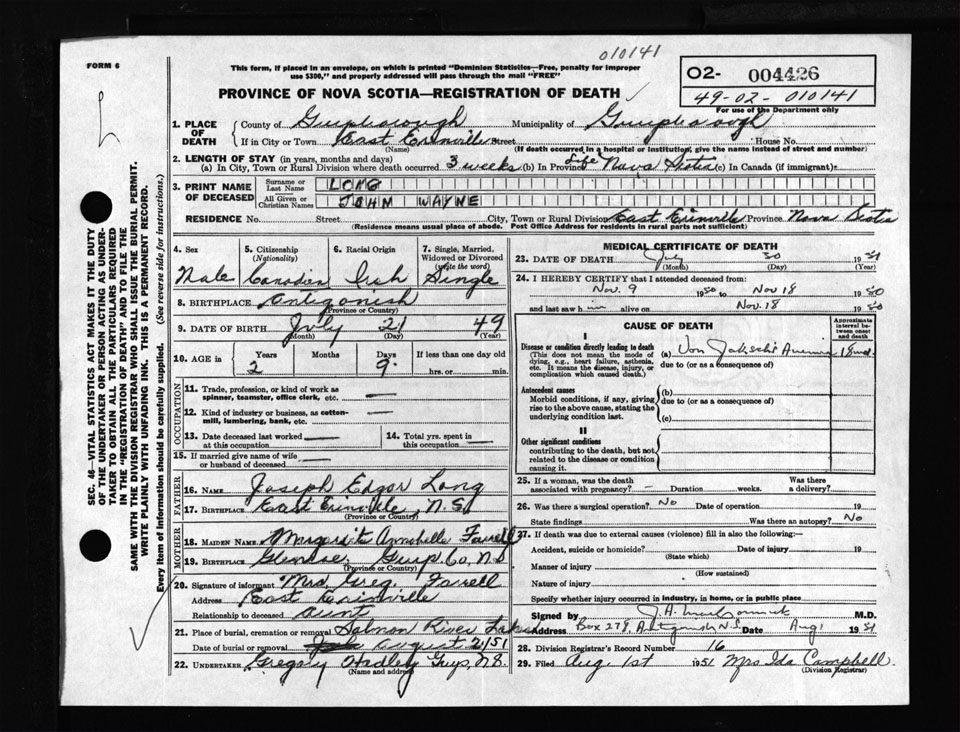 010141
FORM 6
This form, if placed in an envelope, on which is printed "Dominion Statistics—Free, penalty for improper
use $300," and properly addressed will pass through the mail "FREE"
02- 004426
49-02-010141
For use of the Department only
PROVINCE OF NOVA SCOTIA—REGISTRATION OF DEATH
1. PLACE OF DEATH
County of Guysborough Municipality of Guysborough
If in City or Town East Erinville Street House No.
(Name) (If death occurred in a hospital or institution, give the name instead of street and number)
2. LENGTH OF STAY (in years, months and days)
(a) In City, Town or Rural Division where death occurred 3 weeks (b) In Province Life Nova Scotia (c) In Canada (if immigrant)
3. PRINT NAME OF DECEASED
Surname or Last Name LONG
All Given or Christian Names JOHN WAYNE
RESIDENCE No. Street City, Town or Rural Division East Erinville Province Nova Scotia
(Residence means usual place of abode. Post Office Address for residents in rural parts not sufficient)
4. Sex Male
5. Citizenship (Nationality) Canadian
6. Racial Origin Irish
7. Single, Married, Widowed or Divorced (write the word) Single
8. BIRTHPLACE Antigonish
(Province or Country)
9. DATE OF BIRTH July 21 49
(Month) (Day) (Year)
10. AGE in Years Months Days If less than one day old
2 — 9 hrs. or min.
OCCUPATION
11. Trade, profession, or kind of work as spinner, teamster, office clerk, etc. —
12. Kind of industry or business, as cotton-mill, lumbering, bank, etc. —
13. Date deceased last worked at this occupation —
14. Total yrs. spent in this occupation —
15. If married give name of wife or husband of deceased —
FATHER
16. NAME Joseph Edgar Long
17. BIRTHPLACE East Erinville, N.S.
(Province or Country)
MOTHER
18. MAIDEN NAME Margarite Annabelle Farrell
19. BIRTHPLACE Guys Co. N.S
(Province or Country)
20. Signature of informant Mrs. Greg. Farrell
Address East Erinville
Relationship to deceased aunt
21. Place of burial, cremation or removal Salmon River Lake
Date of burial or removal August 2/51
22. UNDERTAKER Gregory Hadley Guys, N.S.
(Name and address)
MEDICAL CERTIFICATE OF DEATH
23. DATE OF DEATH July 30 1951
(Month) (Day)
24. I HEREBY CERTIFY that I attended deceased from:
Nov. 9 1950 to Nov 18 1950
and last saw him alive on Nov. 18 1950
CAUSE OF DEATH
Approximate interval between onset and death
I
Disease or condition directly leading to death
(This does not mean the mode of dying, e.g., heart failure, asthenia, etc. It means the disease, injury, or complication which caused death.)
(a) Von Jaksch's Anemia 18 mo.
due to (or as a consequence of)
Antecedent causes
Morbid conditions, if any, giving rise to the above cause, stating the underlying condition last.
(b)
due to (or as a consequence of)
(c)
II
Other significant conditions
contributing to the death, but not related to the disease or condition causing it.
25. If a woman, was the death associated with pregnancy? – Duration weeks. Was there a delivery?
26. Was there a surgical operation? No Date of operation 19
State findings Was there an autopsy? No
27. If death was due to external causes (violence) fill in also the following:—
Accident, suicide or homicide? Date of injury 19
(State which)
Manner of injury
(How sustained)
Nature of injury
Specify whether injury occurred in industry, in home, or in public place
Signed by M.D.
Address Box 278, Antigonish N.S. Date Aug 1 1951
28. Division Registrar's Record Number 16
29. Filed Aug. 1st 1951 Mrs Ida Campbell.
(Division Registrar)
SEC. 46—VITAL STATISTICS ACT MAKES IT THE DUTY
OF THE UNDERTAKER OR PERSON ACTING AS UNDER-
TAKER TO OBTAIN ALL THE PARTICULARS REQUIRED
IN THE "REGISTRATION OF DEATH" AND TO FILE THE
SAME WITH THE DIVISION REGISTRAR WHO SHALL ISSUE THE BURIAL PERMIT.
WRITE PLAINLY WITH UNFADING INK. THIS IS A PERMANENT RECORD.
Every item of Information should be carefully supplied. (See reverse side for instructions.)